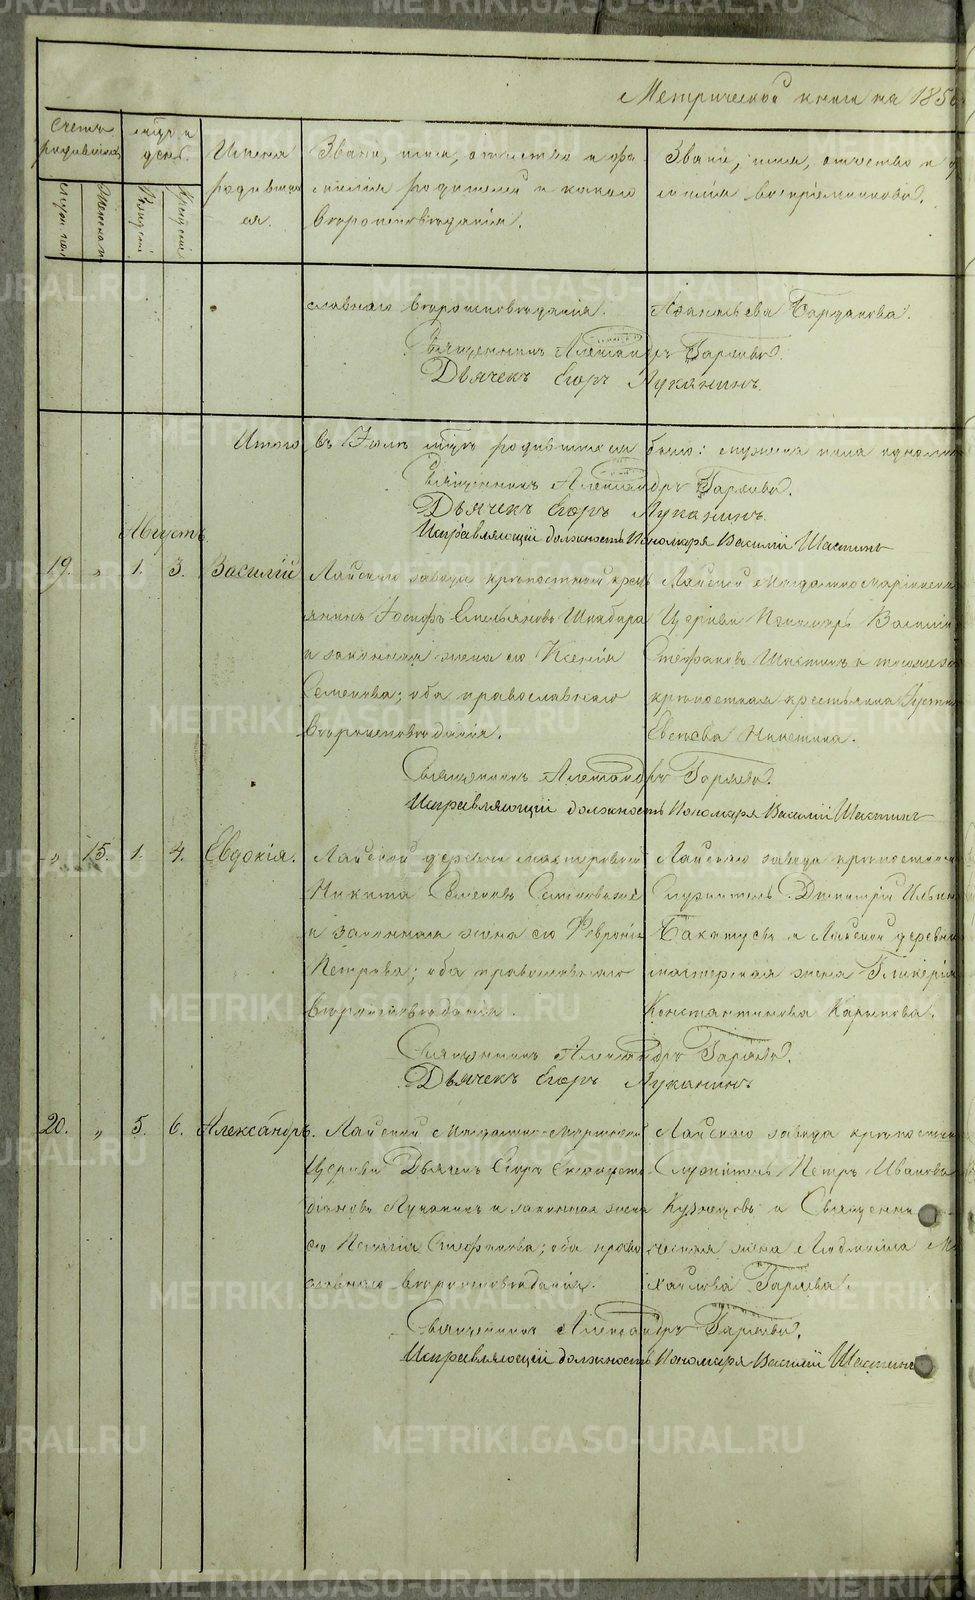 Метрической книги на 1850
Счетъ родившихся
Мѣсяцъ и день.
Имена родившихся.
Званіе, имя, отчество и фамилія родителей и какого вѣроисповѣданія.
Званіе, имя, отчество и фамилія воспріемниковъ.
мужеска
женска
Рожденія
Крещенія
славнаго вѣроисповѣданія.
Аѳанасьева Богданова.
Священникъ Александръ Горяевъ.
Дьячекъ Егоръ Луканинъ.
Итого въ Іюлѣ мѣсяцѣ родившихся было: мужеска пола
Священникъ Александръ Горяевъ.
Дьячекъ Егоръ Луканинъ.
Исправляющій должность Пономаря Василій Шастинъ
Августъ.
19. „ 1. 3. Василій
Лайскаго завода крѣпостной крестьянинъ
Іосифъ Емельяновъ
и законная жена его Ксенія
Семенова; оба православнаго
вѣроисповѣданія.
Лайской Магдалино-Маріинской
Церкви Пономарь Василій
Стефановъ Шастинъ и
крѣпостная крестьянина
Евсѣева Никитина.
Священникъ Александръ Горяевъ.
Исправляющій должность Пономаря Василій Шастинъ
„ 15. 1. 4. Евдокія.
Лайской деревни мастеровой
Никита Семеновъ
и законная жена его Февронія
Петрова; оба православнаго
вѣроисповѣданія.
Лайскаго завода крѣпостной
служитель Димитрій Ильинъ
и Лайской деревни
мастерская жена Гликерія
Константинова Карпова.
Священникъ Александръ Горяевъ.
Дьячекъ Егоръ Луканинъ
20. „ 5. 6. Александръ.
Лайской Магдалино-Маріинской
Церкви Дьячекъ Егоръ
Луканинъ и законная жена
его Пелагія Стефанова; оба православнаго
вѣроисповѣданія.
Лайскаго завода крѣпостной
Служитель Петръ Ивановъ
Кузнецовъ и Священническая
жена Людмила Михайлова
Горяева.
Священникъ Александръ Горяевъ.
Исправляющій должность Пономаря Василій Шастинъ
METRIKI.GASO-URAL.RU